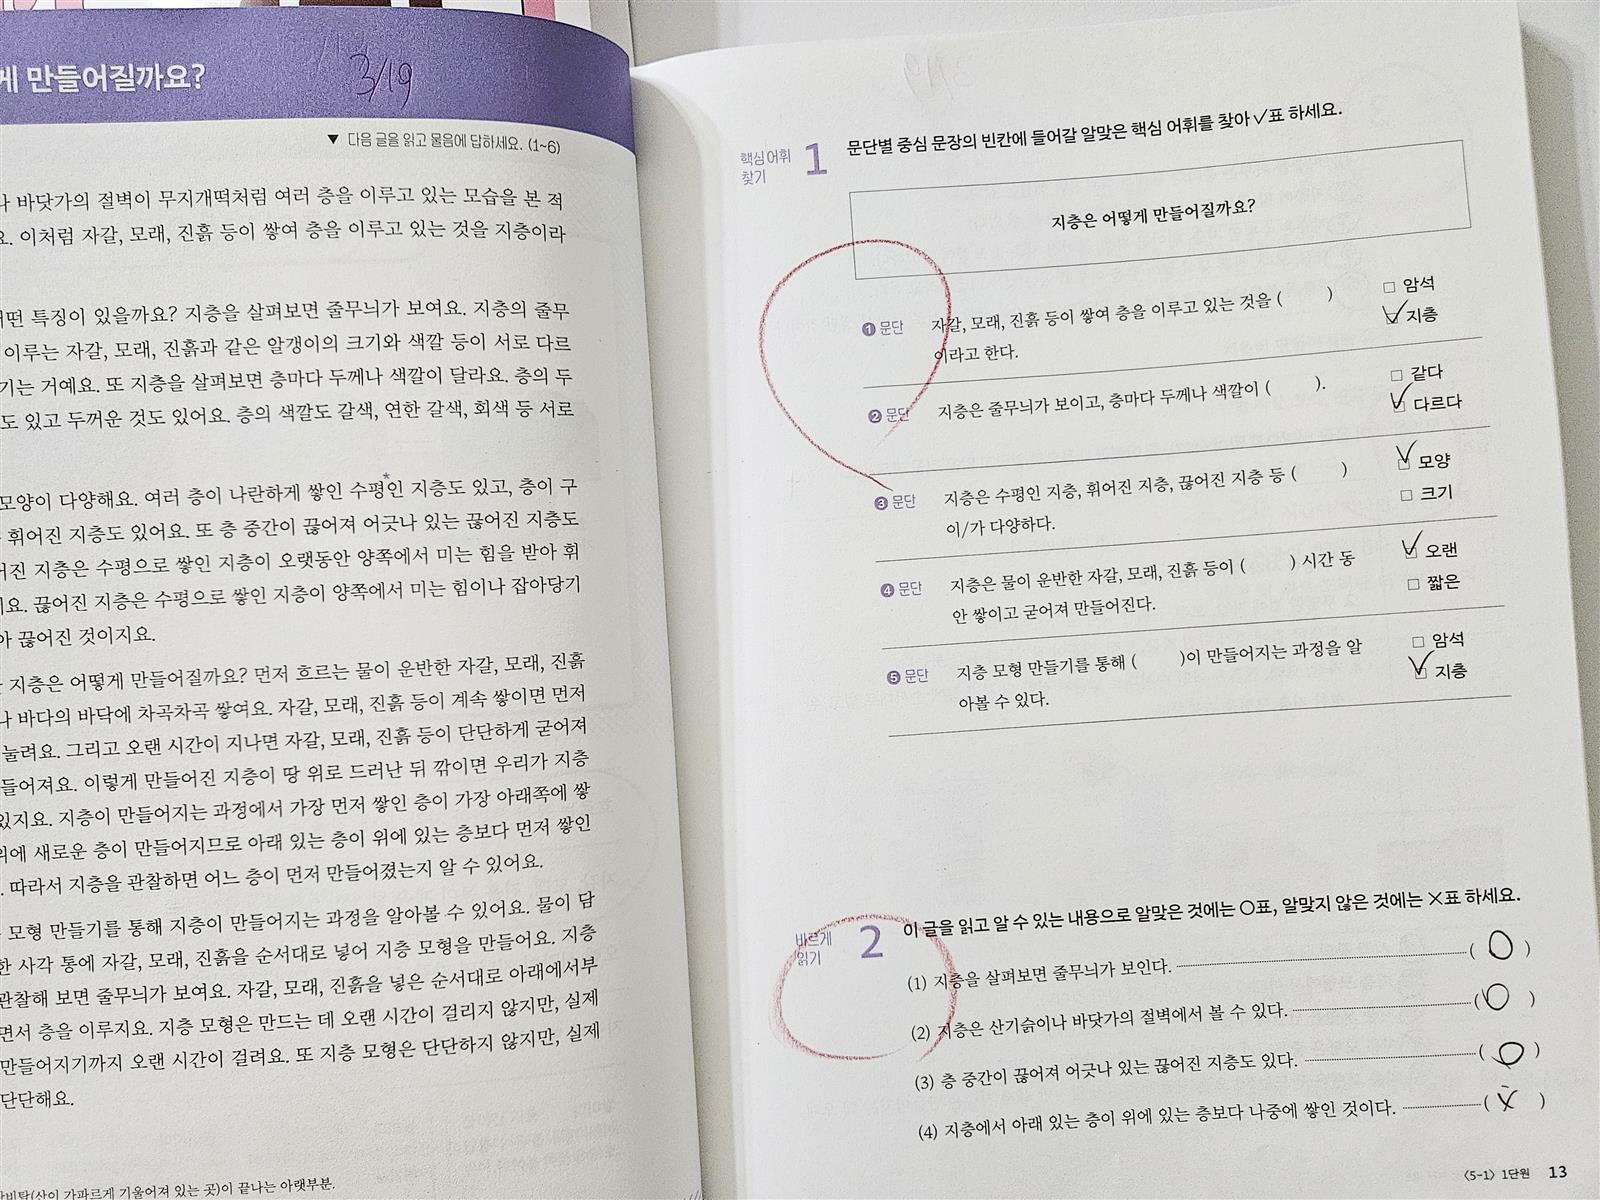 게 만들어질까요?
3/19
▼ 다음 글을 읽고 물음에 답하세요. (1~6)
나 바닷가의 절벽이 무지개떡처럼 여러 층을 이루고 있는 모습을 본 적
요. 이처럼 자갈, 모래, 진흙 등이 쌓여 층을 이루고 있는 것을 지층이라
떤 특징이 있을까요? 지층을 살펴보면 줄무늬가 보여요. 지층의 줄무
이루는 자갈, 모래, 진흙과 같은 알갱이의 크기와 색깔 등이 서로 다르
기는 거예요. 또 지층을 살펴보면 층마다 두께나 색깔이 달라요. 층의 두
도 있고 두꺼운 것도 있어요. 층의 색깔도 갈색, 연한 갈색, 회색 등 서로
모양이 다양해요. 여러 층이 나란하게 쌓인 수평*인 지층도 있고, 층이 구
휘어진 지층도 있어요. 또 층 중간이 끊어져 어긋나 있는 끊어진 지층도
어진 지층은 수평으로 쌓인 지층이 오랫동안 양쪽에서 미는 힘을 받아 휘
요. 끊어진 지층은 수평으로 쌓인 지층이 양쪽에서 미는 힘이나 잡아당기
아 끊어진 것이지요.
지층은 어떻게 만들어질까요? 먼저 흐르는 물이 운반한 자갈, 모래, 진흙
나 바다의 바닥에 차곡차곡 쌓여요. 자갈, 모래, 진흙 등이 계속 쌓이면 먼저
눌려요. 그리고 오랜 시간이 지나면 자갈, 모래, 진흙 등이 단단하게 굳어져
들어져요. 이렇게 만들어진 지층이 땅 위로 드러난 뒤 깎이면 우리가 지층
있지요. 지층이 만들어지는 과정에서 가장 먼저 쌓인 층이 가장 아래쪽에 쌓
위에 새로운 층이 만들어지므로 아래 있는 층이 위에 있는 층보다 먼저 쌓인
. 따라서 지층을 관찰하면 어느 층이 먼저 만들어졌는지 알 수 있어요.
모형 만들기를 통해 지층이 만들어지는 과정을 알아볼 수 있어요. 물이 담
한 사각 통에 자갈, 모래, 진흙을 순서대로 넣어 지층 모형을 만들어요. 지층
관찰해 보면 줄무늬가 보여요. 자갈, 모래, 진흙을 넣은 순서대로 아래에서부
면서 층을 이루지요. 지층 모형은 만드는 데 오랜 시간이 걸리지 않지만, 실제
만들어지기까지 오랜 시간이 걸려요. 또 지층 모형은 단단하지 않지만, 실제
단단해요.
비탈(산이 가파르게 기울어져 있는 곳)이 끝나는 아랫부분.
핵심 어휘
찾기
1 문단별 중심 문장의 빈칸에 들어갈 알맞은 핵심 어휘를 찾아 ✓표 하세요.
지층은 어떻게 만들어질까요?
❶ 문단 자갈, 모래, 진흙 등이 쌓여 층을 이루고 있는 것을 ( )
이라고 한다.
□ 암석
☑ 지층
❷ 문단 지층은 줄무늬가 보이고, 층마다 두께나 색깔이 ( ).
□ 같다
☑ 다르다
❸ 문단 지층은 수평인 지층, 휘어진 지층, 끊어진 지층 등 ( )
이/가 다양하다.
☑ 모양
□ 크기
❹ 문단 지층은 물이 운반한 자갈, 모래, 진흙 등이 ( ) 시간 동
안 쌓이고 굳어져 만들어진다.
☑ 오랜
□ 짧은
❺ 문단 지층 모형 만들기를 통해 ( )이 만들어지는 과정을 알
아볼 수 있다.
□ 암석
☑ 지층
바르게
읽기
2 이 글을 읽고 알 수 있는 내용으로 알맞은 것에는 ○표, 알맞지 않은 것에는 ×표 하세요.
(1) 지층을 살펴보면 줄무늬가 보인다. ( O )
(2) 지층은 산기슭이나 바닷가의 절벽에서 볼 수 있다. ( O )
(3) 층 중간이 끊어져 어긋나 있는 끊어진 지층도 있다. ( O )
(4) 지층에서 아래 있는 층이 위에 있는 층보다 나중에 쌓인 것이다. ( X )
〈5-1〉 1단원 13